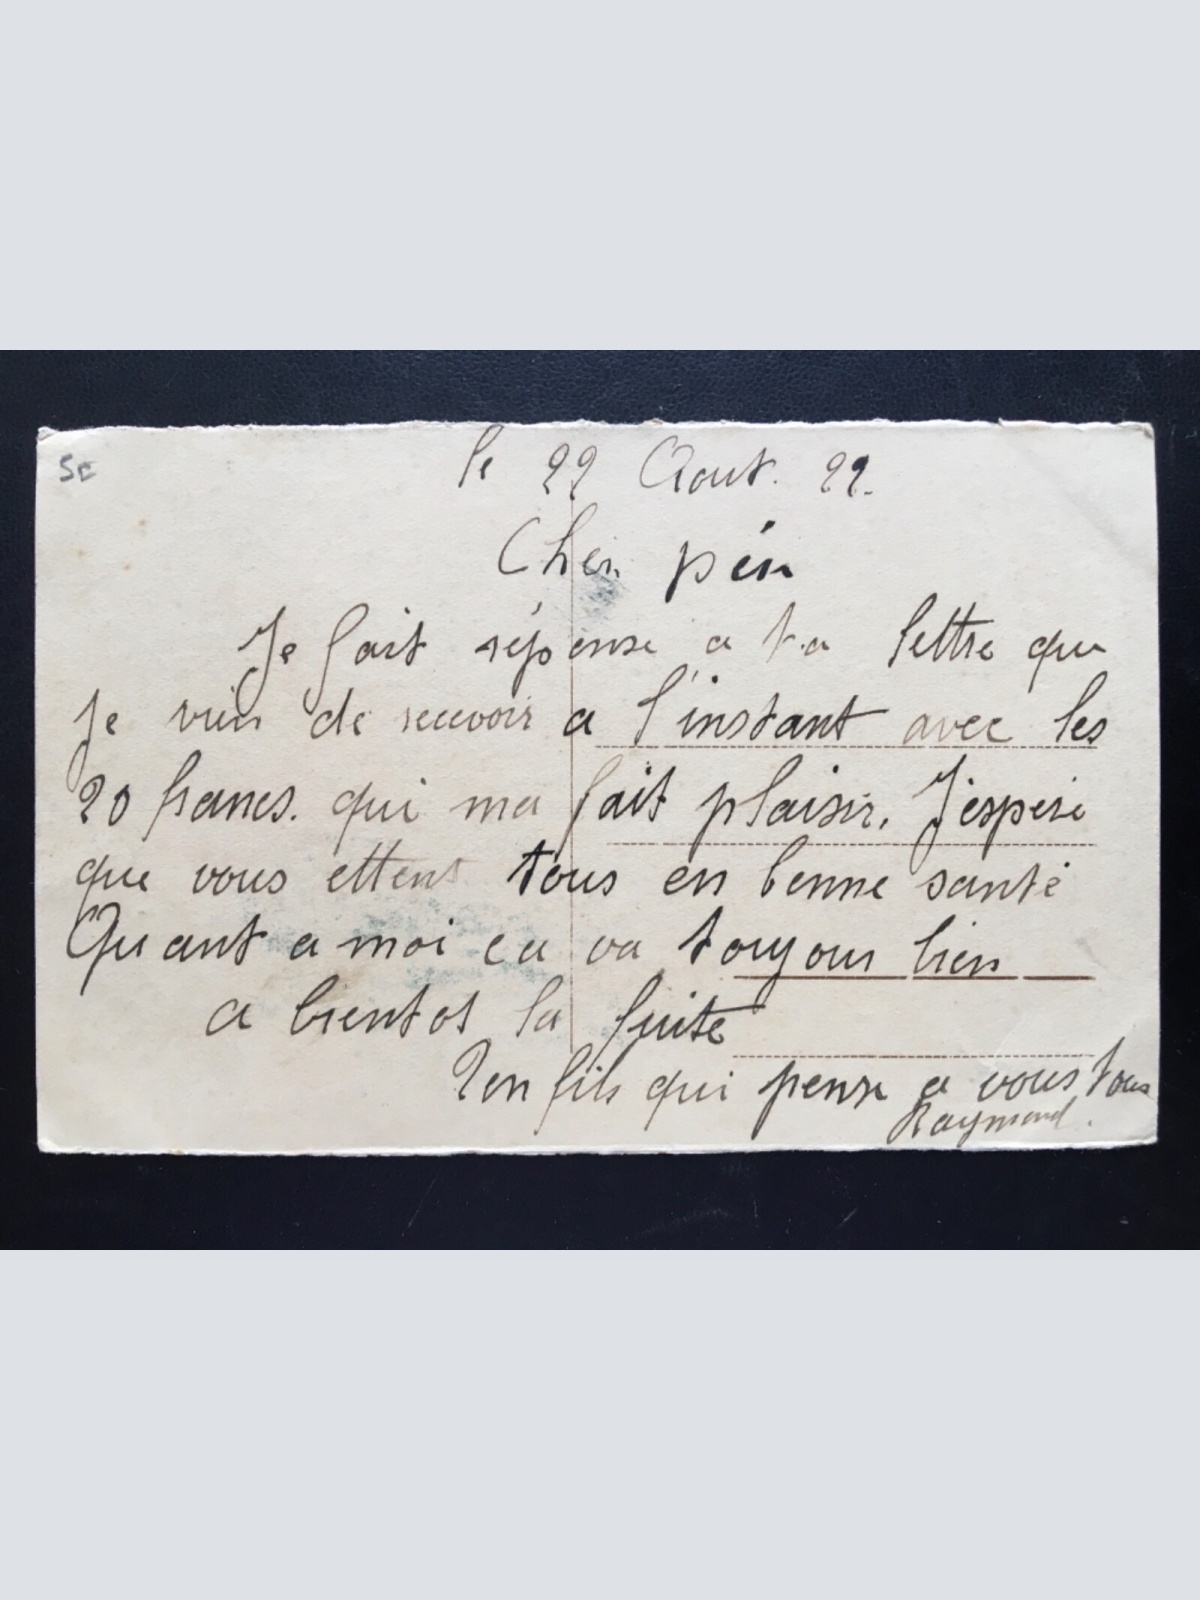 5c
le 22 Aout. 22.
Cher père
Je fait réponse a ta lettre que
Je vien de recevoir a l'instant avec les
20 francs. qui ma fait plaisir. J'espere
que vous ettent tous en bonne santé
Quant a moi ca va toujour bien
a bientot la suite
Ton fils qui pense a vous tous
Raymond.